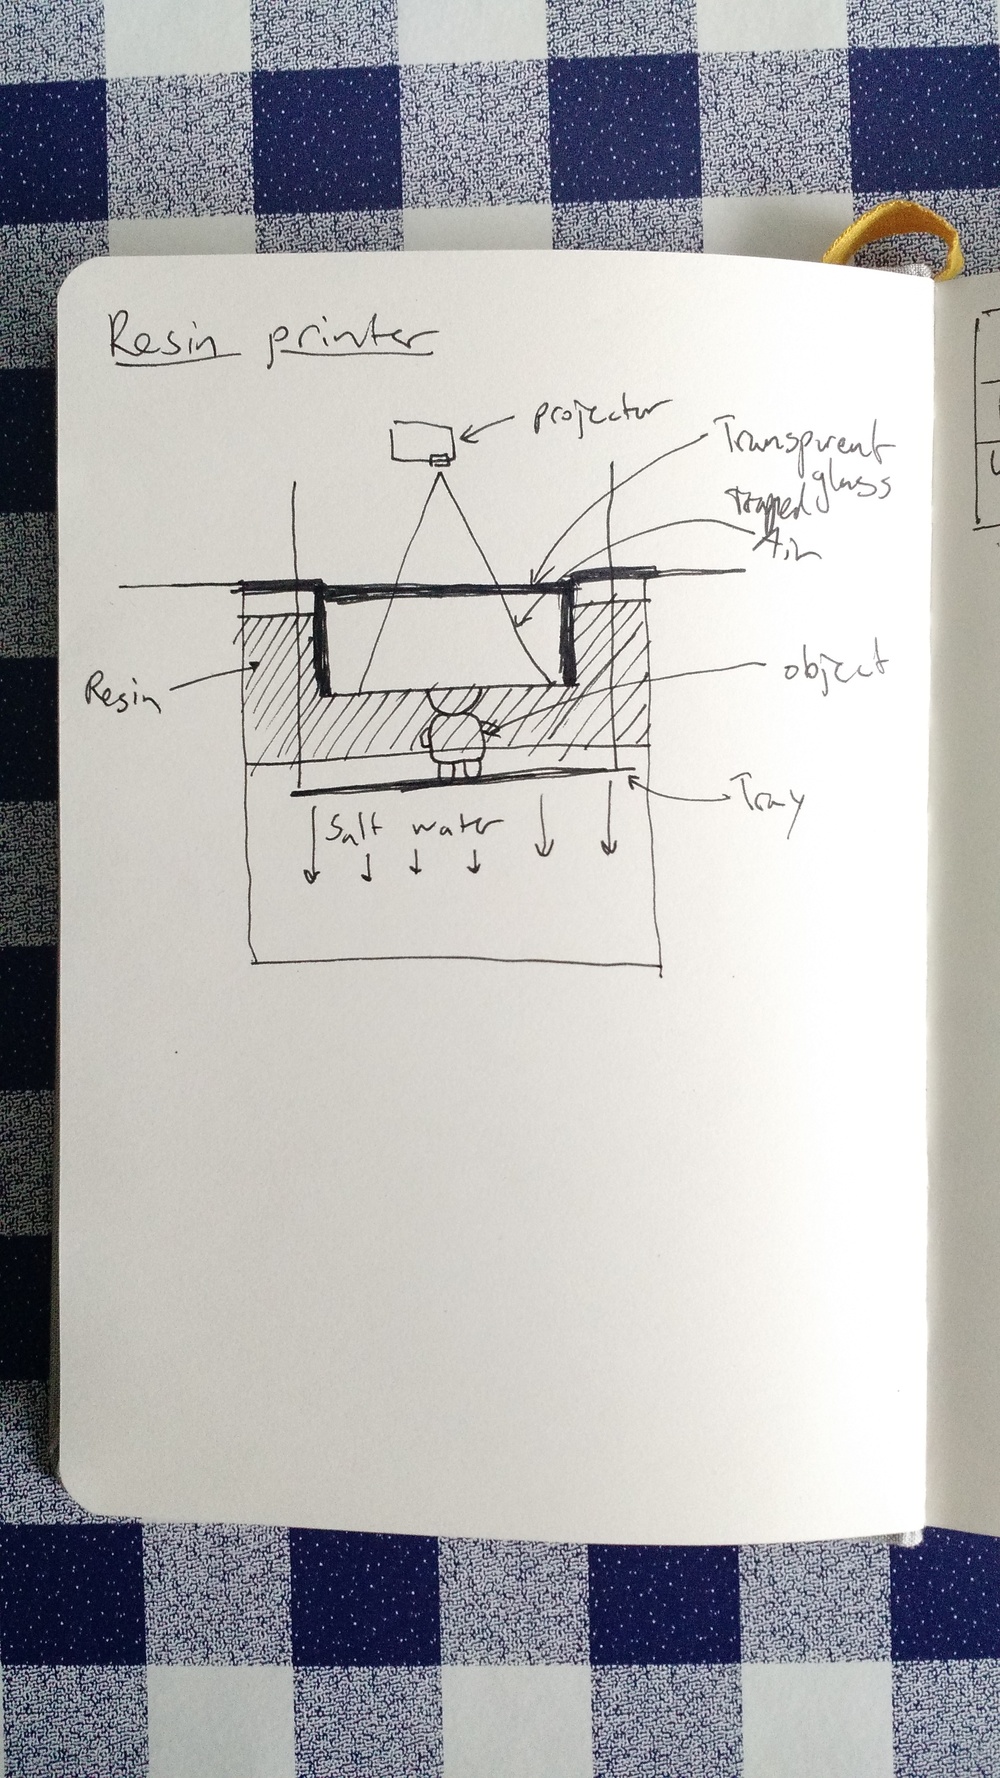 Resin printer
projector
Transprent
glass
Trapped
Air
object
Resin
Tray
Salt water